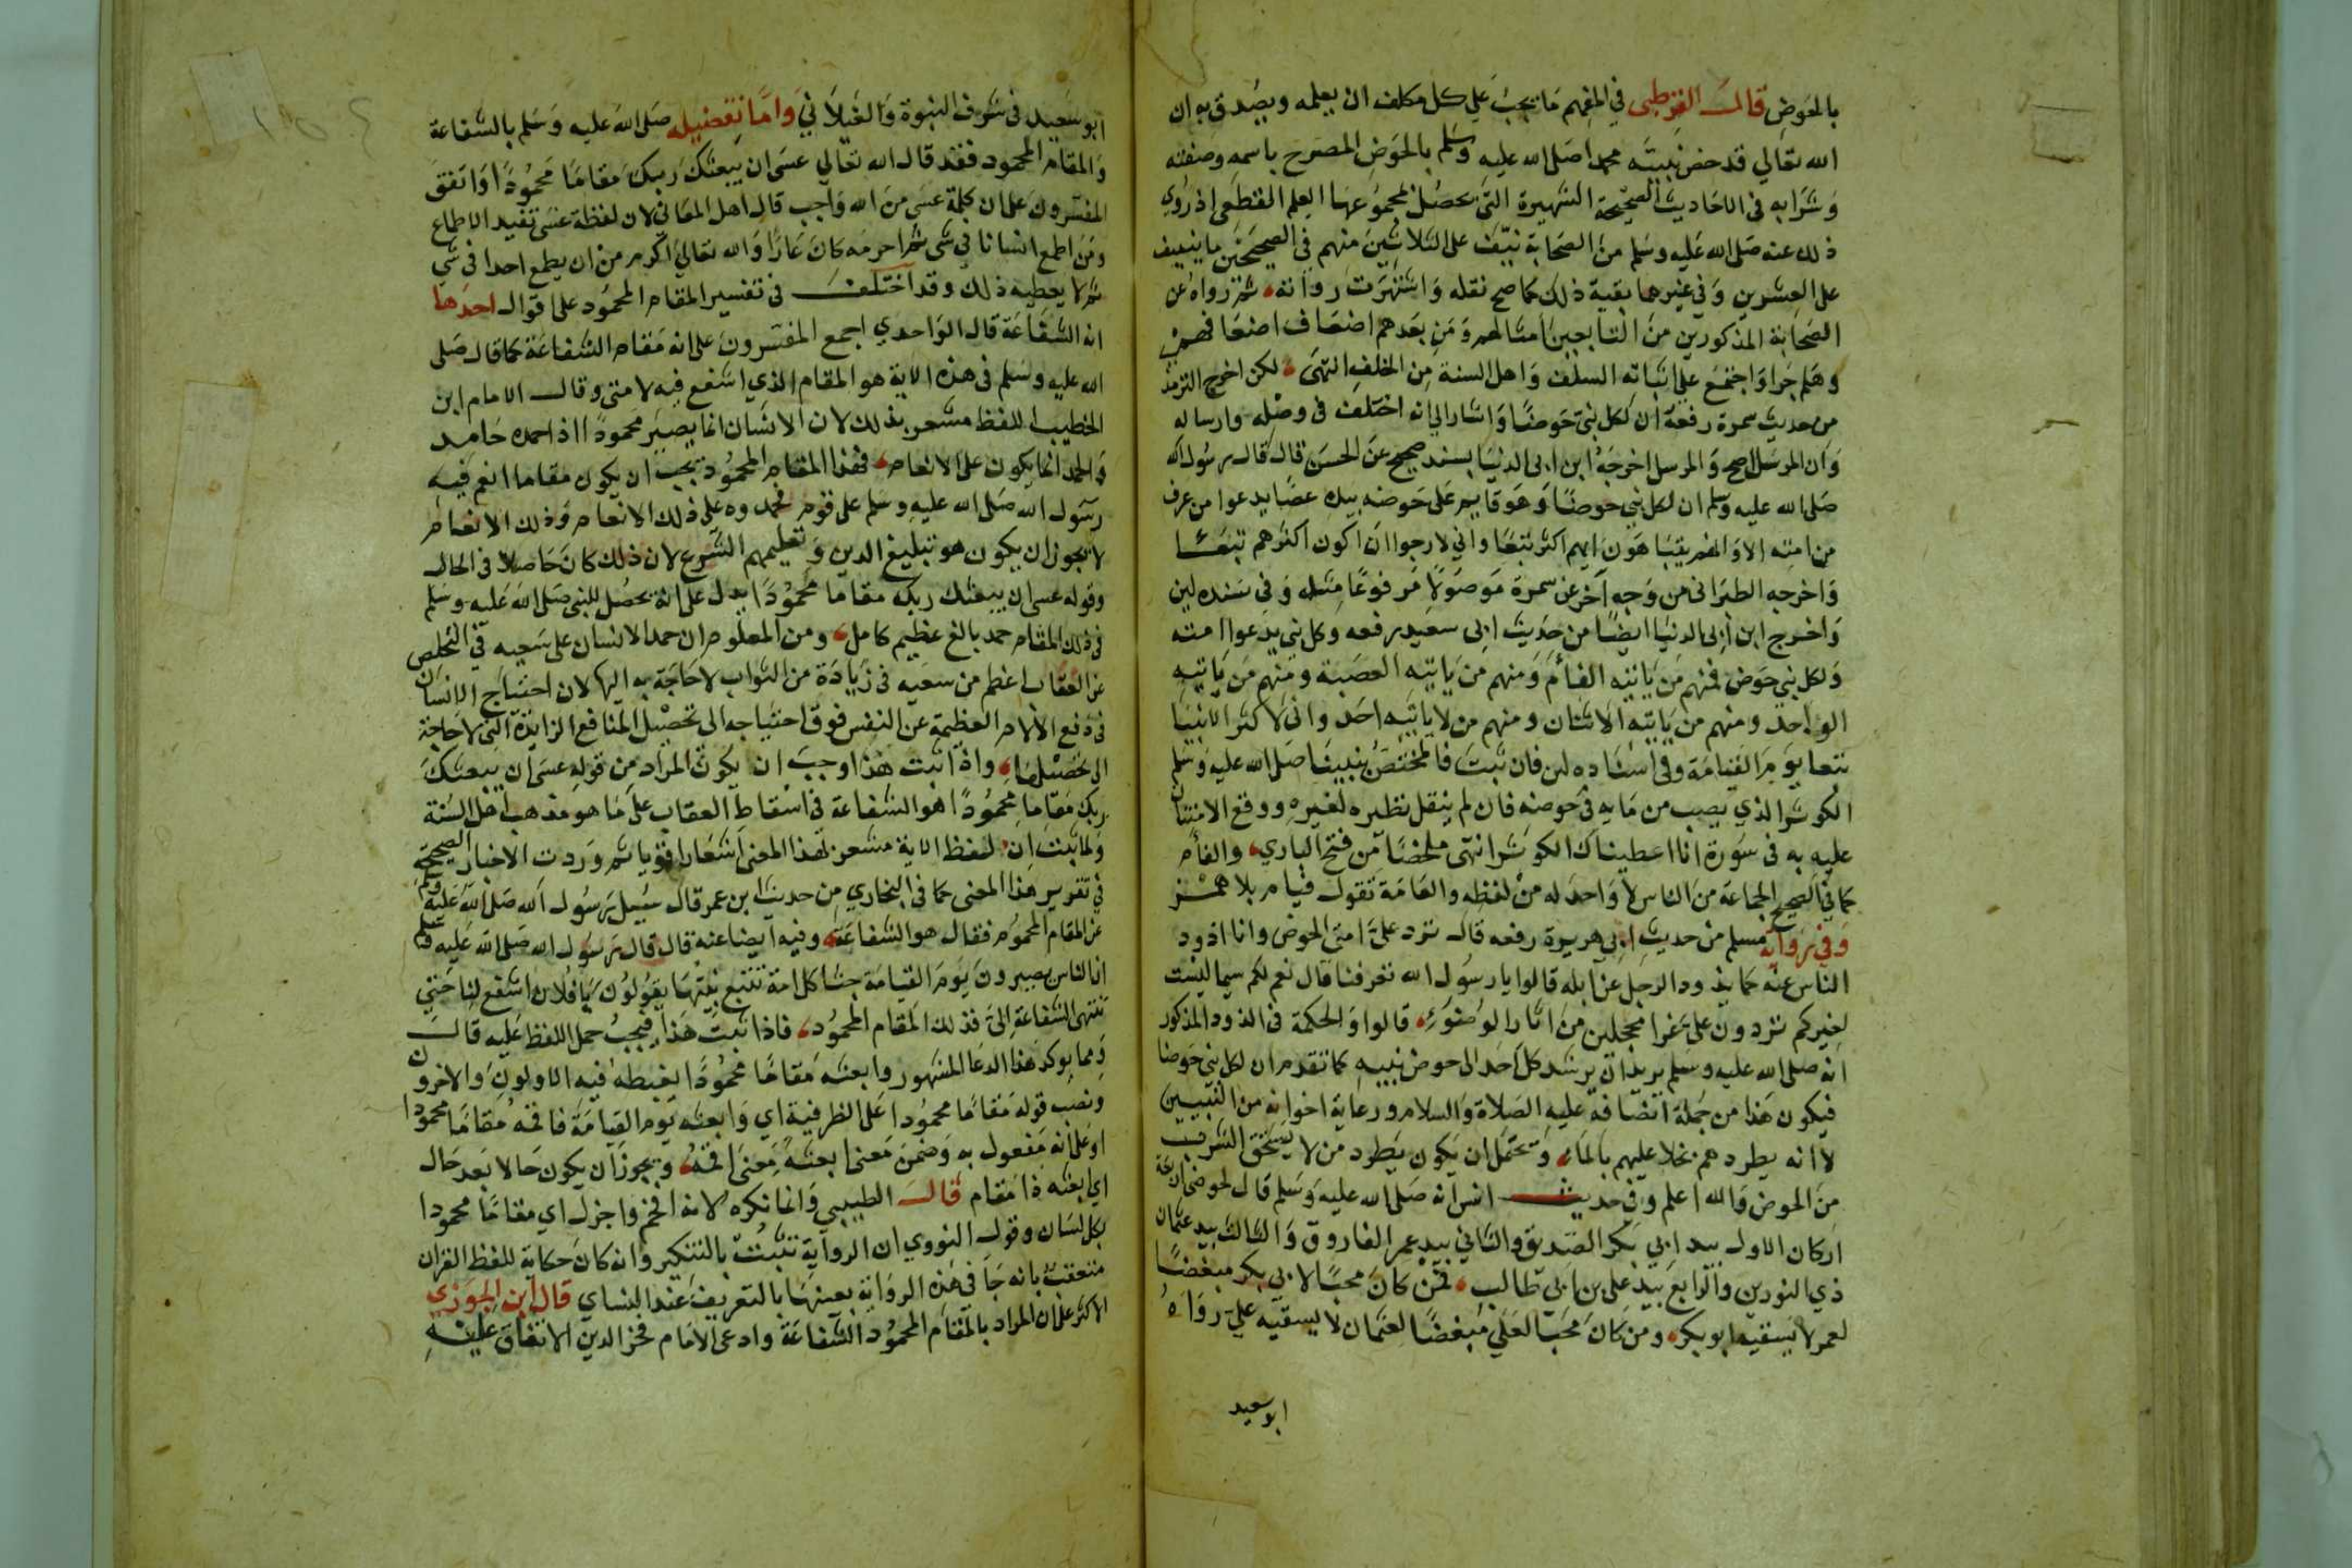 بالحوض قال القرطبي في المفهم مما يجب على كل مكلف ان يعلمه ويصدق به ان
الله تعالى قد خص نبيه محمدا صلى الله عليه وسلم بالحوض المصرح باسمه وصفته
وشرابه في الاحاديث الصحيحة الشهيرة التي يحصل بمجموعها العلم القطعي اذ روي
ذلك عنه صلى الله عليه وسلم من الصحابة نيف على الثلاثين منهم في الصحيحين ما ينيف
على العشرين وفي غيرهما بقية ذلك كما صح نقله واشتهرت رواته ثم رواه عن
الصحابة المذكورين من التابعين امثالهم ومن بعدهم اضعاف اضعافهم
وهلم جرا واجتمع على اثباته السلف واهل السنة من الخلف انتهى لكن اخرج الترمذي
من حديث سمرة رفعه ان لكل نبي حوضا واشار الى انه اختلف في وصله وارساله
وان المرسل اصح والمرسل اخرجه ابن ابي الدنيا بسند صحيح عن الحسن قال قال رسول الله
صلى الله عليه وسلم ان لكل نبي حوضا وهو قايم على حوضه بيده عصا يدعوا من عرف
من امته الا وانهم يتباهون ايهم اكثر تبعا واني لارجوا ان اكون اكثرهم تبعا
واخرجه الطبراني من وجه آخر عن سمرة موصولا مرفوعا مثله وفي سنده لين
واخرج ابن ابي الدنيا ايضا من حديث ابي سعيد رفعه وكل نبي يدعوا امته
ولكل نبي حوض فمنهم من ياتيه الفئام ومنهم من ياتيه العصبة ومنهم من ياتيه
الواحد ومنهم من ياتيه الاثنان ومنهم من لا ياتيه احد واني لاكثر الانبيا
تبعا يوم القيامة وفي اسناده لين فان ثبت فالمختص بنبينا صلى الله عليه وسلم
الكوثر الذي يصب من مايه في حوضه فان لم ينقل نظيره لغيره ووقع الامتنان
عليه به في سورة انا اعطيناك الكوثر انتهى ملخصا من فتح الباري والفئام
كما في الصحيح الجماعة من الناس لا واحد له من لفظه والعامة تقول فيام بلا همز
وفي رواية مسلم من حديث ابي هريرة رفعه قال ترد علي امتي الحوض وانا اذود
الناس عنه كما يذود الرجل عن ابله قالوا يا رسول الله تعرفنا قال نعم لكم سيما ليست
لغيركم تردون علي غرا محجلين من اثار الوضوء قالوا والحكمة في الذود المذكور
انه صلى الله عليه وسلم يريد ان يرشد كل احد الى حوض نبيه كما تقدم ان لكل نبي حوضا
فيكون هذا من جملة انصافه عليه الصلاة والسلام ورعاية اخوانه من النبيين
لا انه يطردهم بخلا عليهم بالماء ويحتمل ان يكون يطرد من لا يستحق الشرب
من الحوض والله اعلم وفي حديث انس انه صلى الله عليه وسلم قال لحوضي اربعة
اركان الاول بيد ابي بكر الصديق والثاني بيد عمر الفاروق والثالث بيد عثمان
ذي النورين والرابع بيد علي بن ابي طالب فمن كان محبا لابي بكر مبغضا
لعمر لا يسقيه ابو بكر ومن كان محبا لعلي مبغضا لعثمان لا يسقيه علي رواه
ابو سعيد
ابو سعيد في شرف النبوة والغيلاني واما تفضيله صلى الله عليه وسلم بالشفاعة
والمقام المحمود فقد قال الله تعالى عسى ان يبعثك ربك مقاما محمودا واتفق
المفسرون على ان كلمة عسى من الله واجب قال اهل المعاني لان لفظة عسى تفيد الاطماع
ومن اطمع انسانا في شي ثم احرمه كان عارا والله تعالى اكرم من ان يطمع احدا في شي
ثم لا يعطيه ذلك وقد اختلف في تفسير المقام المحمود على اقوال احدها
انه الشفاعة قال الواحدي اجمع المفسرون على انه مقام الشفاعة كما قال صلى
الله عليه وسلم في هذه الاية هو المقام الذي اشفع فيه لامتي وقال الامام ابن
الخطيب اللفظ مشعر بذلك لان الانسان انما يصير محمودا اذا حمده حامد
والحمد انما يكون على الانعام فهذا المقام المحمود يجب ان يكون مقاما انعم فيه
رسول الله صلى الله عليه وسلم على قوم فحمدوه على ذلك الانعام وذلك الانعام
لا يجوز ان يكون هو تبليغ الدين وتعليمهم الشرع لان ذلك كان حاصلا في الحال
وقوله عسى ان يبعثك ربك مقاما محمودا يدل على انه يحصل للنبي صلى الله عليه وسلم
في ذلك المقام حمد بالغ عظيم كامل ومن المعلوم ان حمد الانسان على سعيه في التخلص
عن العقاب اعظم من سعيه في زيادة من الثواب لا حاجة به اليها لان احتياج الانسان
في دفع الالام العظيمة عن النفس فوق احتياجه الى تحصيل المنافع الزايدة التي لا حاجة
الى تحصيلها واذا ثبت هذا وجب ان يكون المراد من قوله عسى ان يبعثك
ربك مقاما محمودا هو الشفاعة في اسقاط العقاب على ما هو مذهب اهل السنة
ولما ثبت ان لفظ الاية مشعر بهذا المعنى اشعارا قويا ثم وردت الاخبار الصحيحة
في تقرير هذا المعنى كما في البخاري من حديث ابن عمر قال سئيل رسول الله صلى الله عليه وسلم
عن المقام المحمود فقال هو الشفاعة وفيه ايضا عنه قال قال رسول الله صلى الله عليه وسلم
ان الناس يصيرون يوم القيامة جثا كل امة تتبع نبيها يقولون يا فلان اشفع لنا حتى
تنتهي الشفاعة الي فذلك المقام المحمود فاذا ثبت هذا فيجب حمل اللفظ عليه قال
ومما يوكد هذا الدعا المشهور وابعثه مقاما محمودا يغبطه فيه الاولون والاخرون
ونصب قوله مقاما محمودا على الظرفية اي وابعثه يوم القيامة فاقمه مقاما محمودا
او على انه مفعول به وضمن معنى ابعثه معنى اقمه ويجوز ان يكون حالا بعد حال
اي ابعثه ذا مقام قال الطيبي وانما نكره لانه افخم واجزل اي مقاما محمودا
بكل لسان وقول النووي ان الرواية تثبت بالتنكير وانه كان حكاية للفظ القران
متعقب بانه جا في هذه الرواية بعينها بالتعريف عند النساي قال ابن الجوزي
الاكثر على ان المراد بالمقام المحمود الشفاعة وادعى الامام فخر الدين الاتفاق عليه